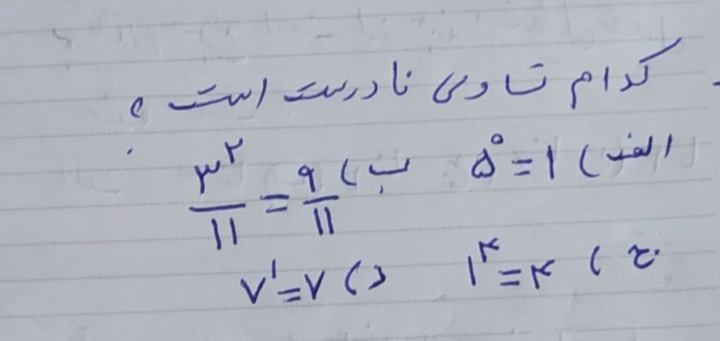 کدام تساوی نادرست است؟
الف) ۵⁰=۱ ب) ۳²/۱۱ = ۹/۱۱
ج) ۱⁴=۴ د) ۷¹=۷